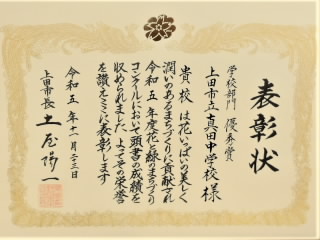 表彰状
学校部門 優秀賞
上田市立真田中学校様
貴校は花いっぱいの美しく
潤いのあるまちづくりに貢献され
令和五年度花と緑のまちづくり
コンクールにおいて頭書の成績を
収められました よってその栄誉
を讃えここに表彰します
令和五年十一月二十三日
上田市長 土屋陽一